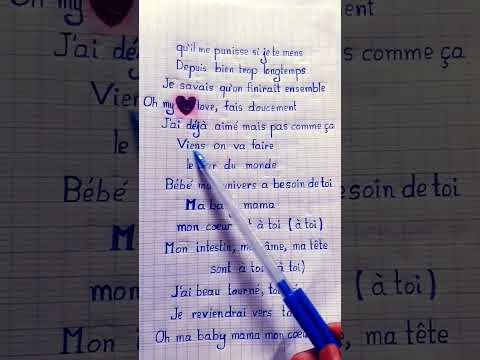 qu'il me punisse si je te mens
Depuis bien trop longtemps
Je savais qu'on finirait ensemble
Oh my love, fais doucement
J'ai déjà aimé mais pas comme ça
Viens on va faire
le du monde
Bébé univers a besoin de toi
Ma mama
mon coeur à toi (à toi)
Mon intestin, âme, ma tête
sont à à toi)
J'ai beau tourne,
Je reviendrai vers
Oh ma baby mama mon